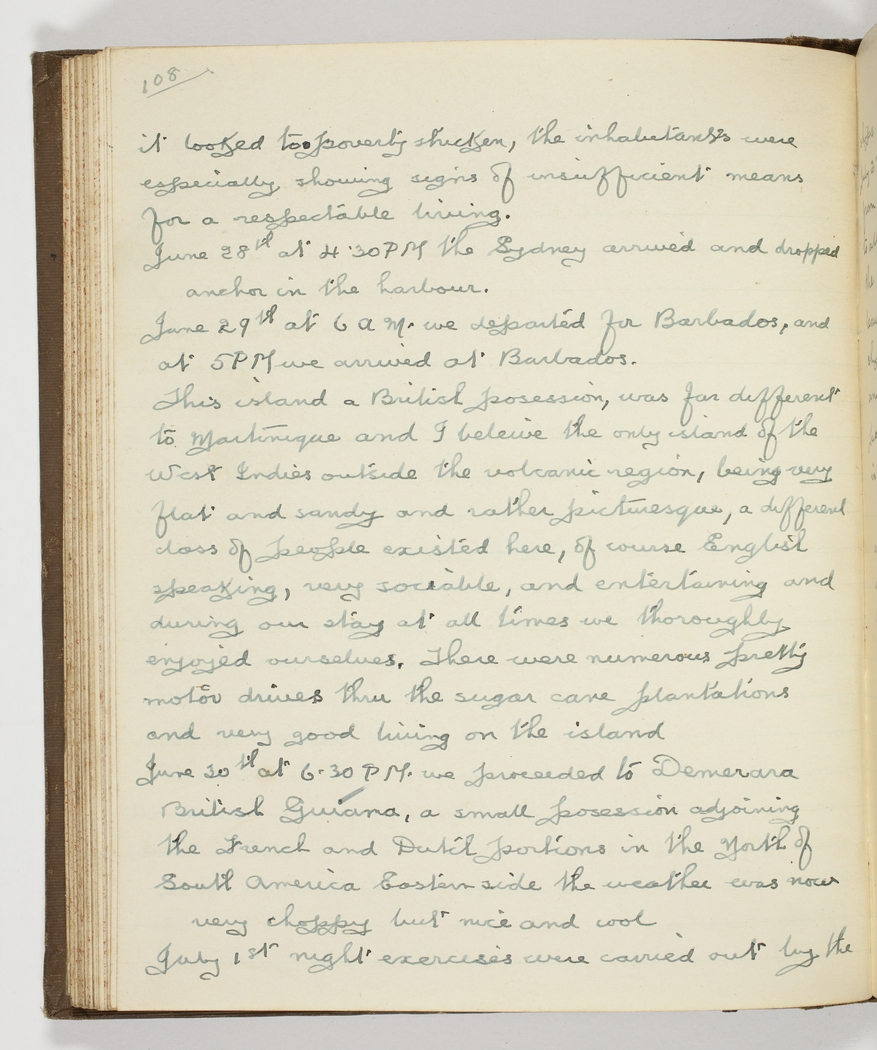 108
it looked too poverty stricken, the inhabetants were
especially showing signs of insufficient means
for a respectable living.
June 28th at 4.30 PM the Sydney arrived and dropped
anchor in the harbour.
June 29th at 6 a M. we departed for Barbados, and
at 5 PM we arrived at Barbados.
This island a British posession, was far different
to Martinique and I beleive the only island of the
West Indies outside the volcanic region, being very
flat and sandy and rather picturesque, a different
class of people existed here, of course English
speaking, very sociable, and entertaining and
during our stay at all times we thoroughly
enjoyed ourselves. There were numerous pretty
motor drives thru the sugar cane plantations
and very good living on the island
June 30th at 6.30 P.M. we proceeded to Demerara
British Guiana, a small posession adjoining
the French and Dutch portions in the North of
South America Eastern side the weather was now
very choppy but nice and cool
July 1st night exercises were carried out by the